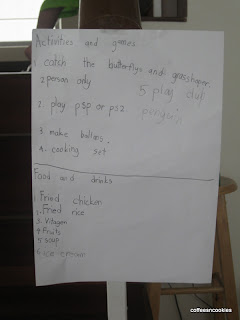 Activities and games
1. catch the butterflys and grasshoper.
2 peson only
5 play club penguin.
2. play psp or ps2
3. make ballons.
4. cooking set
Food and drinks
1. Fried chicken
2. Fried rice
3. Vitagen
4 Fruits
5 soup
6 ice cream
coffeesncookies